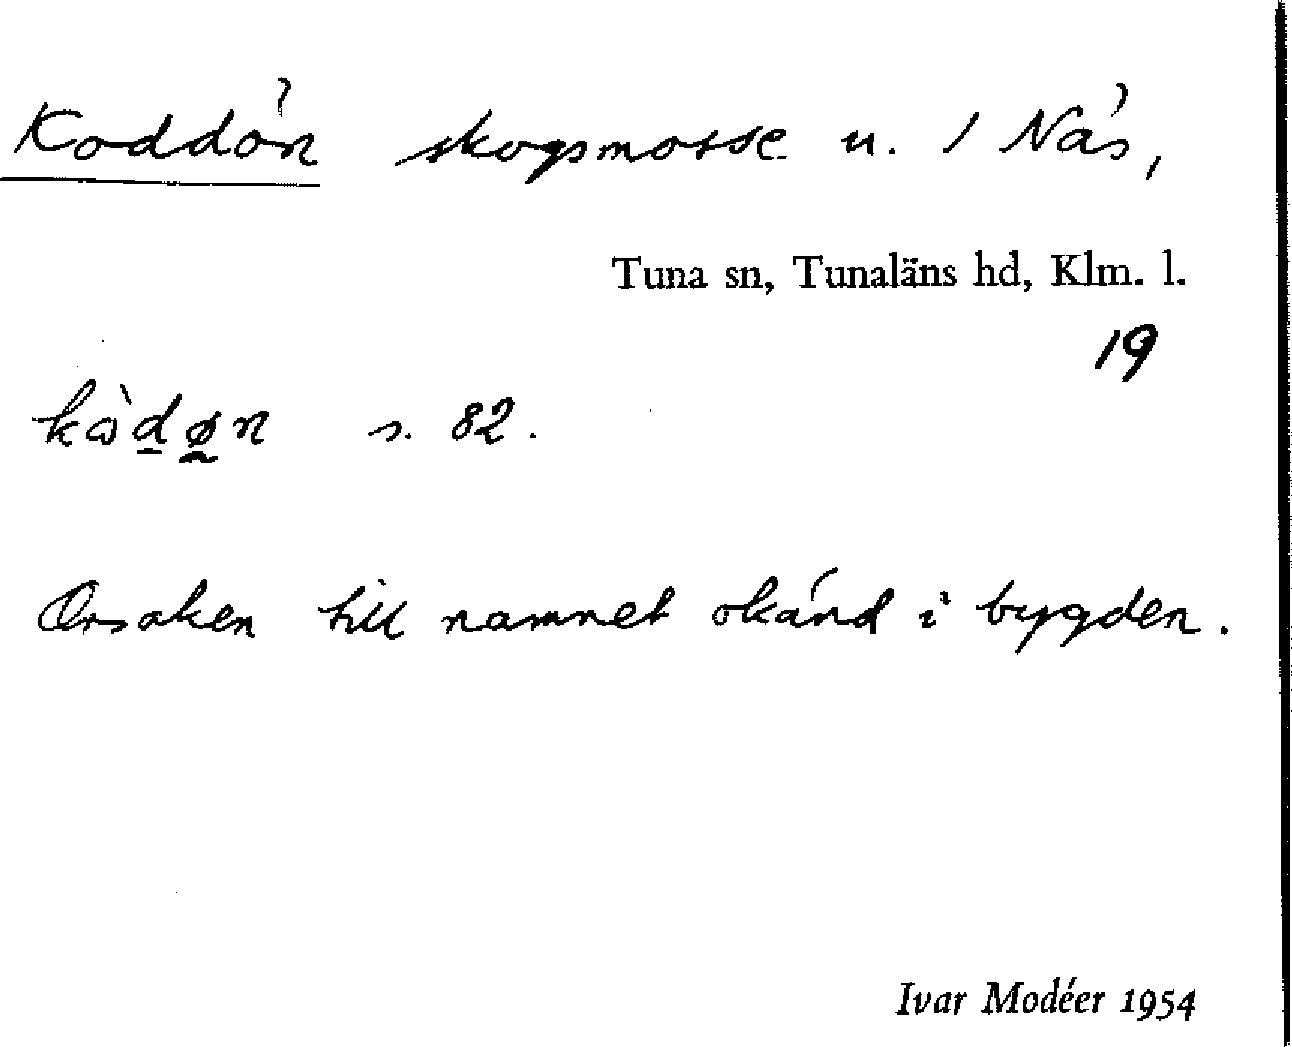 Koddön skogsmosse u. 1 Näs,
Tuna sn, Tunaläns hd, Klm. l.
19
s. 82.
Orsaken till namnet okänd i bygden.
Ivar Modéer 1954